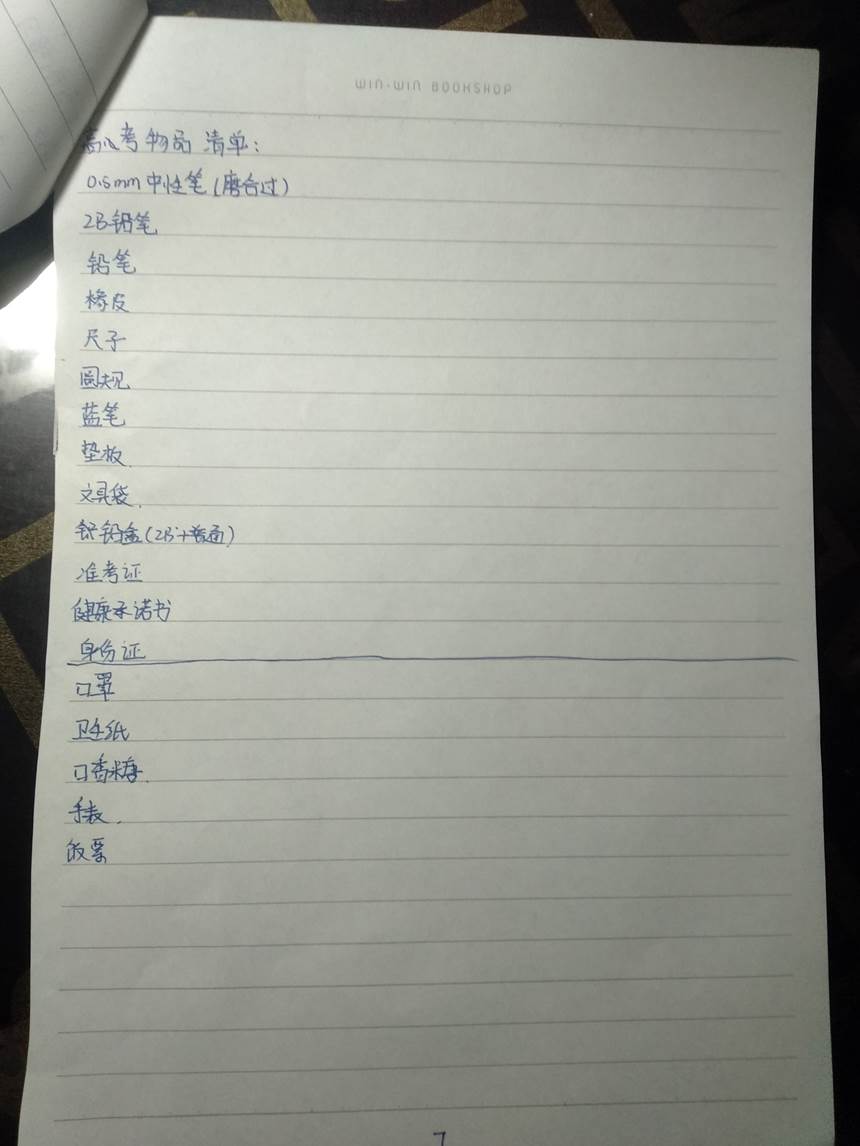 WIN·WIN BOOKSHOP
高考物品清单:
0.5mm中性笔(磨合过)
2B铅笔
铅笔
橡皮
尺子
圆规
蓝笔
垫板.
文具袋.
铅盒(2B+普通)
准考证
健康承诺书
身份证
口罩
卫生纸
口香糖.
手表.
饭票
7